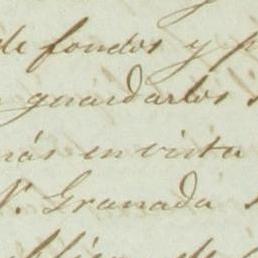 de fondos y p
guardarlos
más en vista
N. Granada